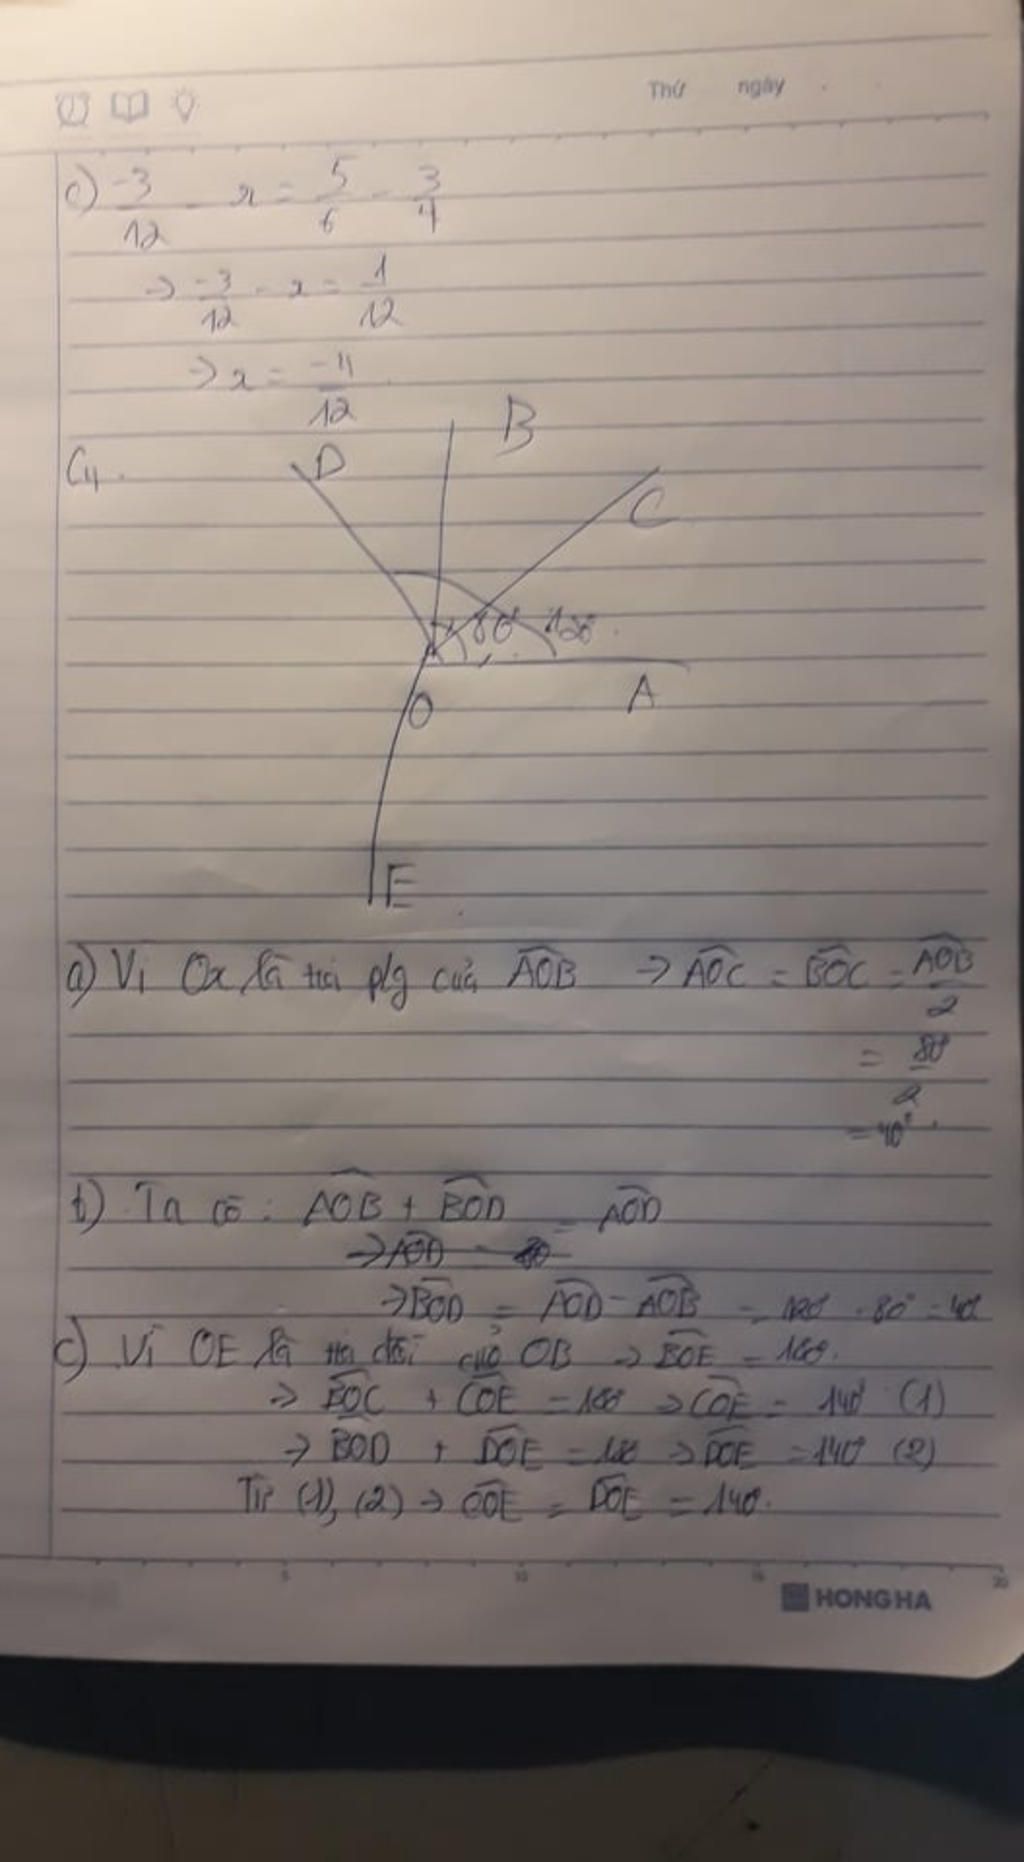 Thứ ngày
c) -3/12 - x = 5/6 - 3/4
→ -3/12 - x = 1/12
→ x = -4/12
C4.
D
B
C
80° 120°
O
A
E
a) Vì Ox là tia p/g của AOB → AOC = BOC = AOB/2
= 80°/2
= 40°.
b) Ta có: AOB + BOD = AOD
→ BOD = AOD - AOB = 120° - 80° = 40°
c) Vì OE là tia đối của OB → BOE = 180°.
→ BOC + COE = 180° → COE = 140° (1)
→ BOD + DOE = 180 → DOE = 140° (2)
Từ (1), (2) → COE = DOE = 140°.
5 10 15 20
HONG HA